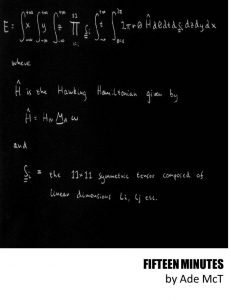 E = ∫∫∫ ∏ ∫∫ 2πrθ Ĥ dθ dt dz dy dx
where
Ĥ is the Hawking Hamiltonian given by
Ĥ = H_N M_A ω
and
the 11×11 symmetric tensor composed of
linear dimensions Li, Lj etc.
FIFTEEN MINUTES
by Ade McT